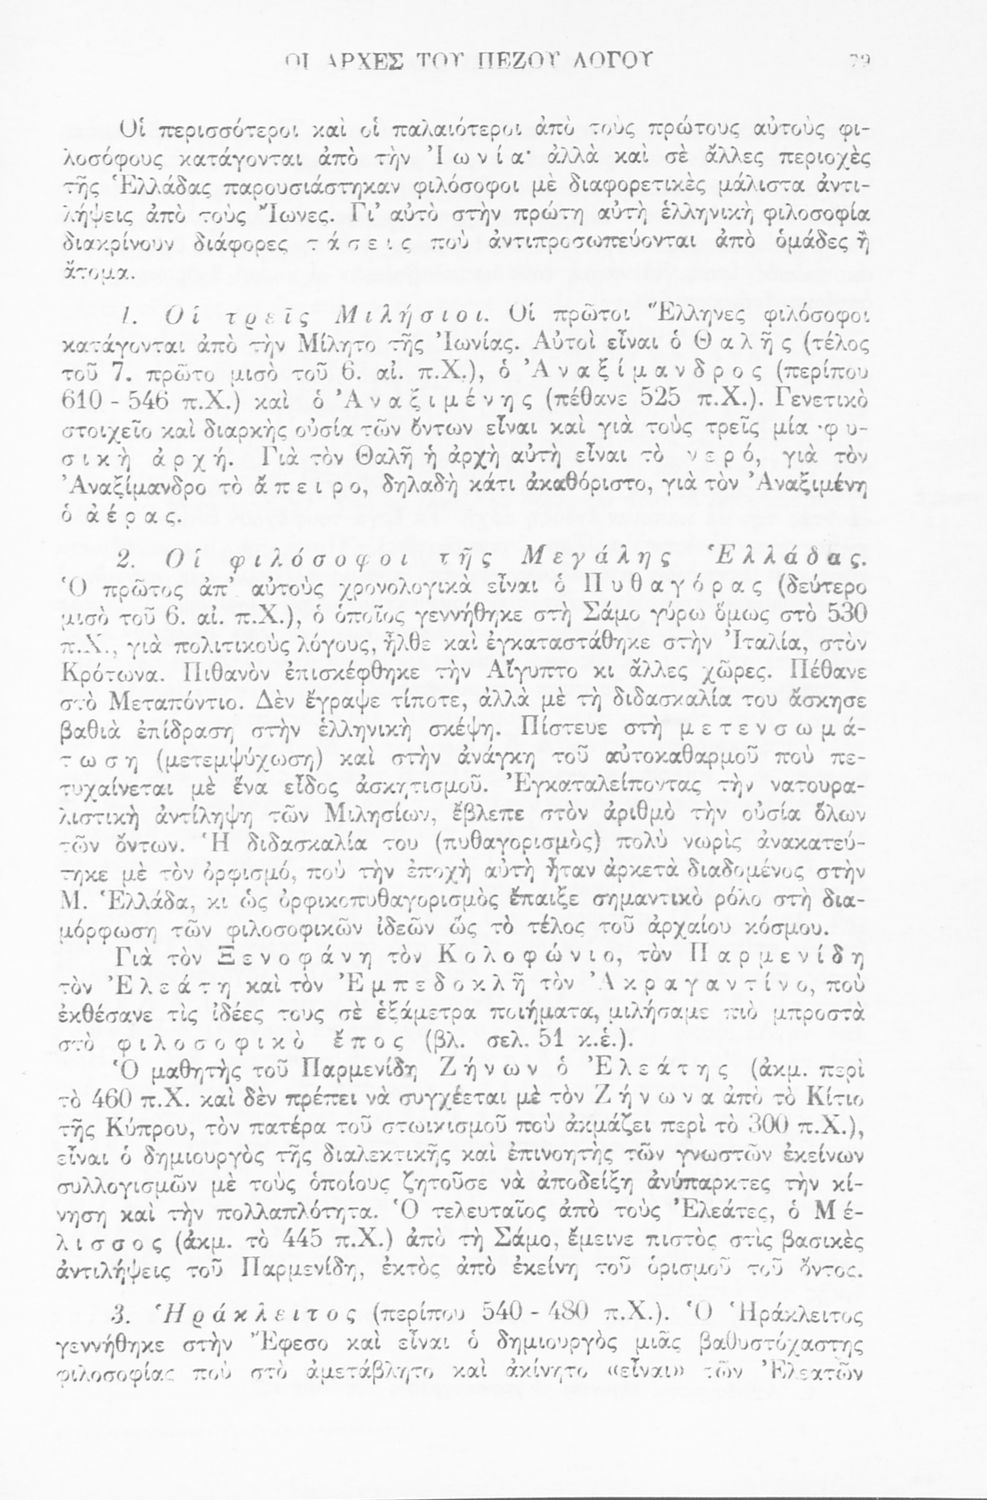 ΟΙ ΑΡΧΕΣ ΤΟΥ ΠΕΖΟΥ ΛΟΓΟΥ 79
Οἱ περισσότεροι καὶ οἱ παλαιότεροι ἀπὸ τοὺς πρώτους αὐτοὺς φι-
λοσόφους κατάγονται ἀπὸ τὴν Ἰωνία· ἀλλὰ καὶ σὲ ἄλλες περιοχὲς
τῆς Ἑλλάδας παρουσιάστηκαν φιλόσοφοι μὲ διαφορετικὲς μάλιστα ἀντι-
λήψεις ἀπὸ τοὺς Ἴωνες. Γι’ αὐτὸ στὴν πρώτη αὐτὴ ἑλληνικὴ φιλοσοφία
διακρίνουν διάφορες τάσεις ποὺ ἀντιπροσωπεύονται ἀπὸ ὁμάδες ἢ
ἄτομα.
1. Οἱ τρεῖς Μιλήσιοι. Οἱ πρῶτοι Ἕλληνες φιλόσοφοι
κατάγονται ἀπὸ τὴν Μίλητο τῆς Ἰωνίας. Αὐτοὶ εἶναι ὁ Θαλῆς (τέλος
τοῦ 7. πρῶτο μισὸ τοῦ 6. αἰ. π.Χ.), ὁ Ἀναξίμανδρος (περίπου
610 - 546 π.Χ.) καὶ ὁ Ἀναξιμένης (πέθανε 525 π.Χ.). Γενετικὸ
στοιχεῖο καὶ διαρκὴς οὐσία τῶν ὄντων εἶναι καὶ γιὰ τοὺς τρεῖς μία φυ-
σικὴ ἀρχή. Γιὰ τὸν Θαλῆ ἡ ἀρχὴ αὐτὴ εἶναι τὸ νερό, γιὰ τὸν
Ἀναξίμανδρο τὸ ἄπειρο, δηλαδὴ κάτι ἀκαθόριστο, γιὰ τὸν Ἀναξιμένη
ὁ ἀέρας.
2. Οἱ φιλόσοφοι τῆς Μεγάλης Ἑλλάδας.
Ὁ πρῶτος ἀπ’ αὐτοὺς χρονολογικὰ εἶναι ὁ Πυθαγόρας (δεύτερο
μισὸ τοῦ 6. αἰ. π.Χ.), ὁ ὁποῖος γεννήθηκε στὴ Σάμο γύρω ὅμως στὸ 530
π.Χ., γιὰ πολιτικοὺς λόγους, ἦλθε καὶ ἐγκαταστάθηκε στὴν Ἰταλία, στὸν
Κρότωνα. Πιθανὸν ἐπισκέφθηκε τὴν Αἴγυπτο κι ἄλλες χῶρες. Πέθανε
στὸ Μεταπόντιο. Δὲν ἔγραψε τίποτε, ἀλλὰ μὲ τὴ διδασκαλία του ἄσκησε
βαθιὰ ἐπίδραση στὴν ἑλληνικὴ σκέψη. Πίστευε στὴ μετενσωμά-
τωση (μετεμψύχωση) καὶ στὴν ἀνάγκη τοῦ αὐτοκαθαρμοῦ ποὺ πε-
τυχαίνεται μὲ ἕνα εἶδος ἀσκητισμοῦ. Ἐγκαταλείποντας τὴν νατουρα-
λιστικὴ ἀντίληψη τῶν Μιλησίων, ἔβλεπε στὸν ἀριθμὸ τὴν οὐσία ὅλων
τῶν ὄντων. Ἡ διδασκαλία του (πυθαγορισμὸς) πολὺ νωρὶς ἀνακατεύ-
τηκε μὲ τὸν ὀρφισμό, ποὺ τὴν ἐποχὴ αὐτὴ ἦταν ἀρκετὰ διαδομένος στὴν
Μ. Ἑλλάδα, κι ὡς ὀρφικοπυθαγορισμὸς ἔπαιξε σημαντικὸ ρόλο στὴ δια-
μόρφωση τῶν φιλοσοφικῶν ἰδεῶν ὣς τὸ τέλος τοῦ ἀρχαίου κόσμου.
Γιὰ τὸν Ξενοφάνη τὸν Κολοφώνιο, τὸν Παρμενίδη
τὸν Ἐλεάτη καὶ τὸν Ἐμπεδοκλῆ τὸν Ἀκραγαντίνο, ποὺ
ἐκθέσανε τὶς ἰδέες τους σὲ ἑξάμετρα ποιήματα, μιλήσαμε πιὸ μπροστὰ
στὸ φιλοσοφικὸ ἔπος (βλ. σελ. 51 κ.ἑ.).
Ὁ μαθητὴς τοῦ Παρμενίδη Ζήνων ὁ Ἐλεάτης (ἀκμ. περὶ
τὸ 460 π.Χ. καὶ δὲν πρέπει νὰ συγχέεται μὲ τὸν Ζήνωνα ἀπὸ τὸ Κίτιο
τῆς Κύπρου, τὸν πατέρα τοῦ στωικισμοῦ ποὺ ἀκμάζει περὶ τὸ 300 π.Χ.),
εἶναι ὁ δημιουργὸς τῆς διαλεκτικῆς καὶ ἐπινοητὴς τῶν γνωστῶν ἐκείνων
συλλογισμῶν μὲ τοὺς ὁποίους ζητοῦσε νὰ ἀποδείξη ἀνύπαρκτες τὴν κί-
νηση καὶ τὴν πολλαπλότητα. Ὁ τελευταῖος ἀπὸ τοὺς Ἐλεάτες, ὁ Μέ-
λισσος (ἀκμ. τὸ 445 π.Χ.) ἀπὸ τὴ Σάμο, ἔμεινε πιστὸς στὶς βασικὲς
ἀντιλήψεις τοῦ Παρμενίδη, ἐκτὸς ἀπὸ ἐκείνη τοῦ ὁρισμοῦ τοῦ ὄντος.
3. Ἡράκλειτος (περίπου 540 - 480 π.Χ.). Ὁ Ἡράκλειτος
γεννήθηκε στὴν Ἔφεσο καὶ εἶναι ὁ δημιουργὸς μιᾶς βαθυστόχαστης
φιλοσοφίας ποὺ στὸ ἀμετάβλητο καὶ ἀκίνητο «εἶναι» τῶν Ἐλεατῶν